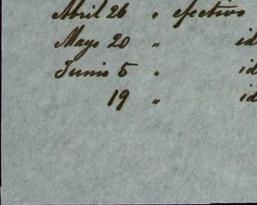 Abril 26 " efectivo
Mayo 20 " id
Junio 5 " id
19 " id